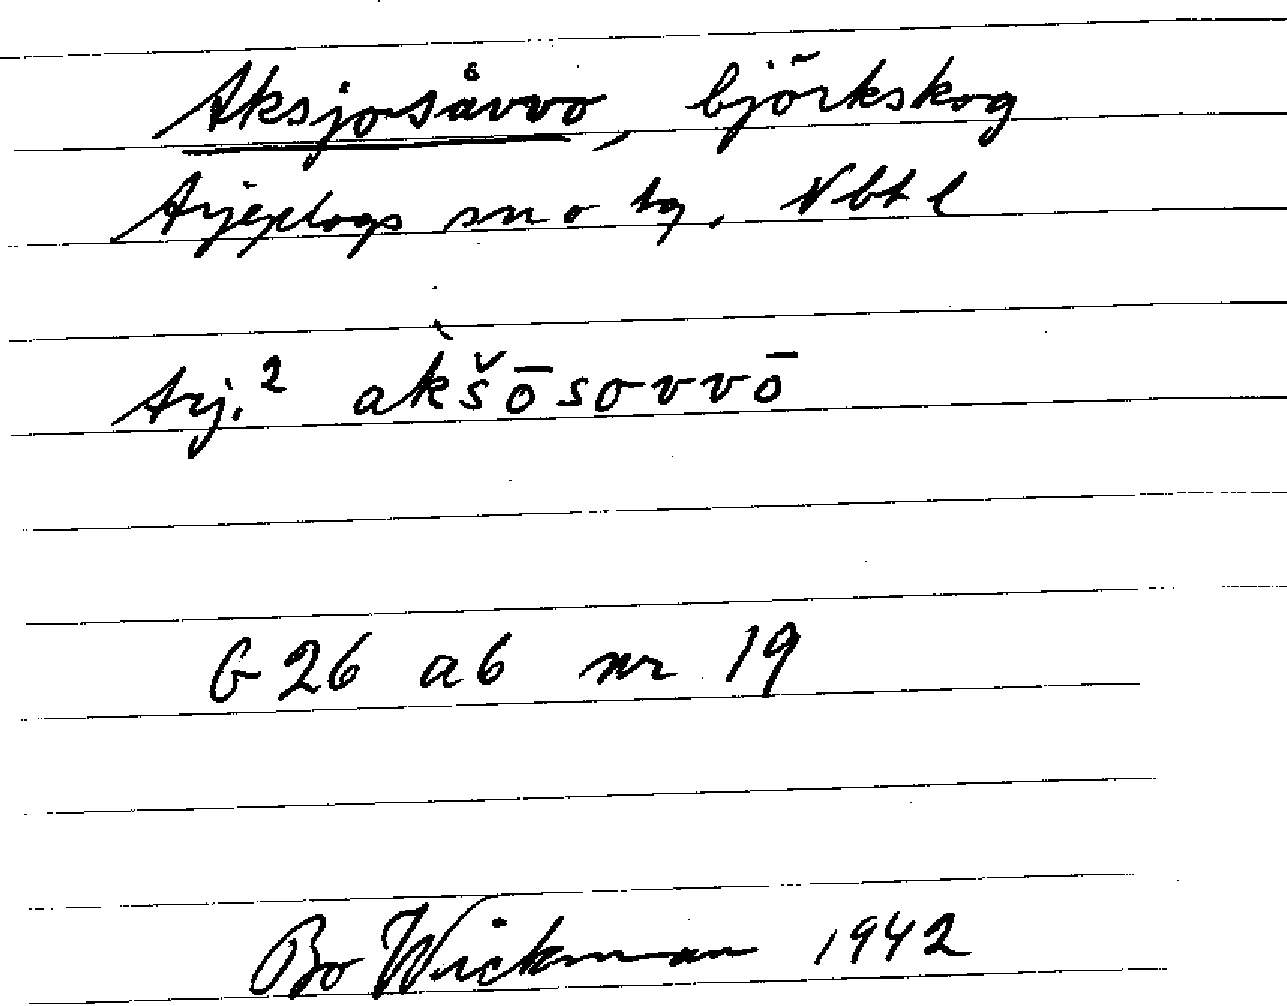 Aksjosåvvo, björkskog
Arjeplogs sn o tg, Nbt l
Arj.² àkšōsovvō
G 26 ab nr 19
Bo Wickman 1942